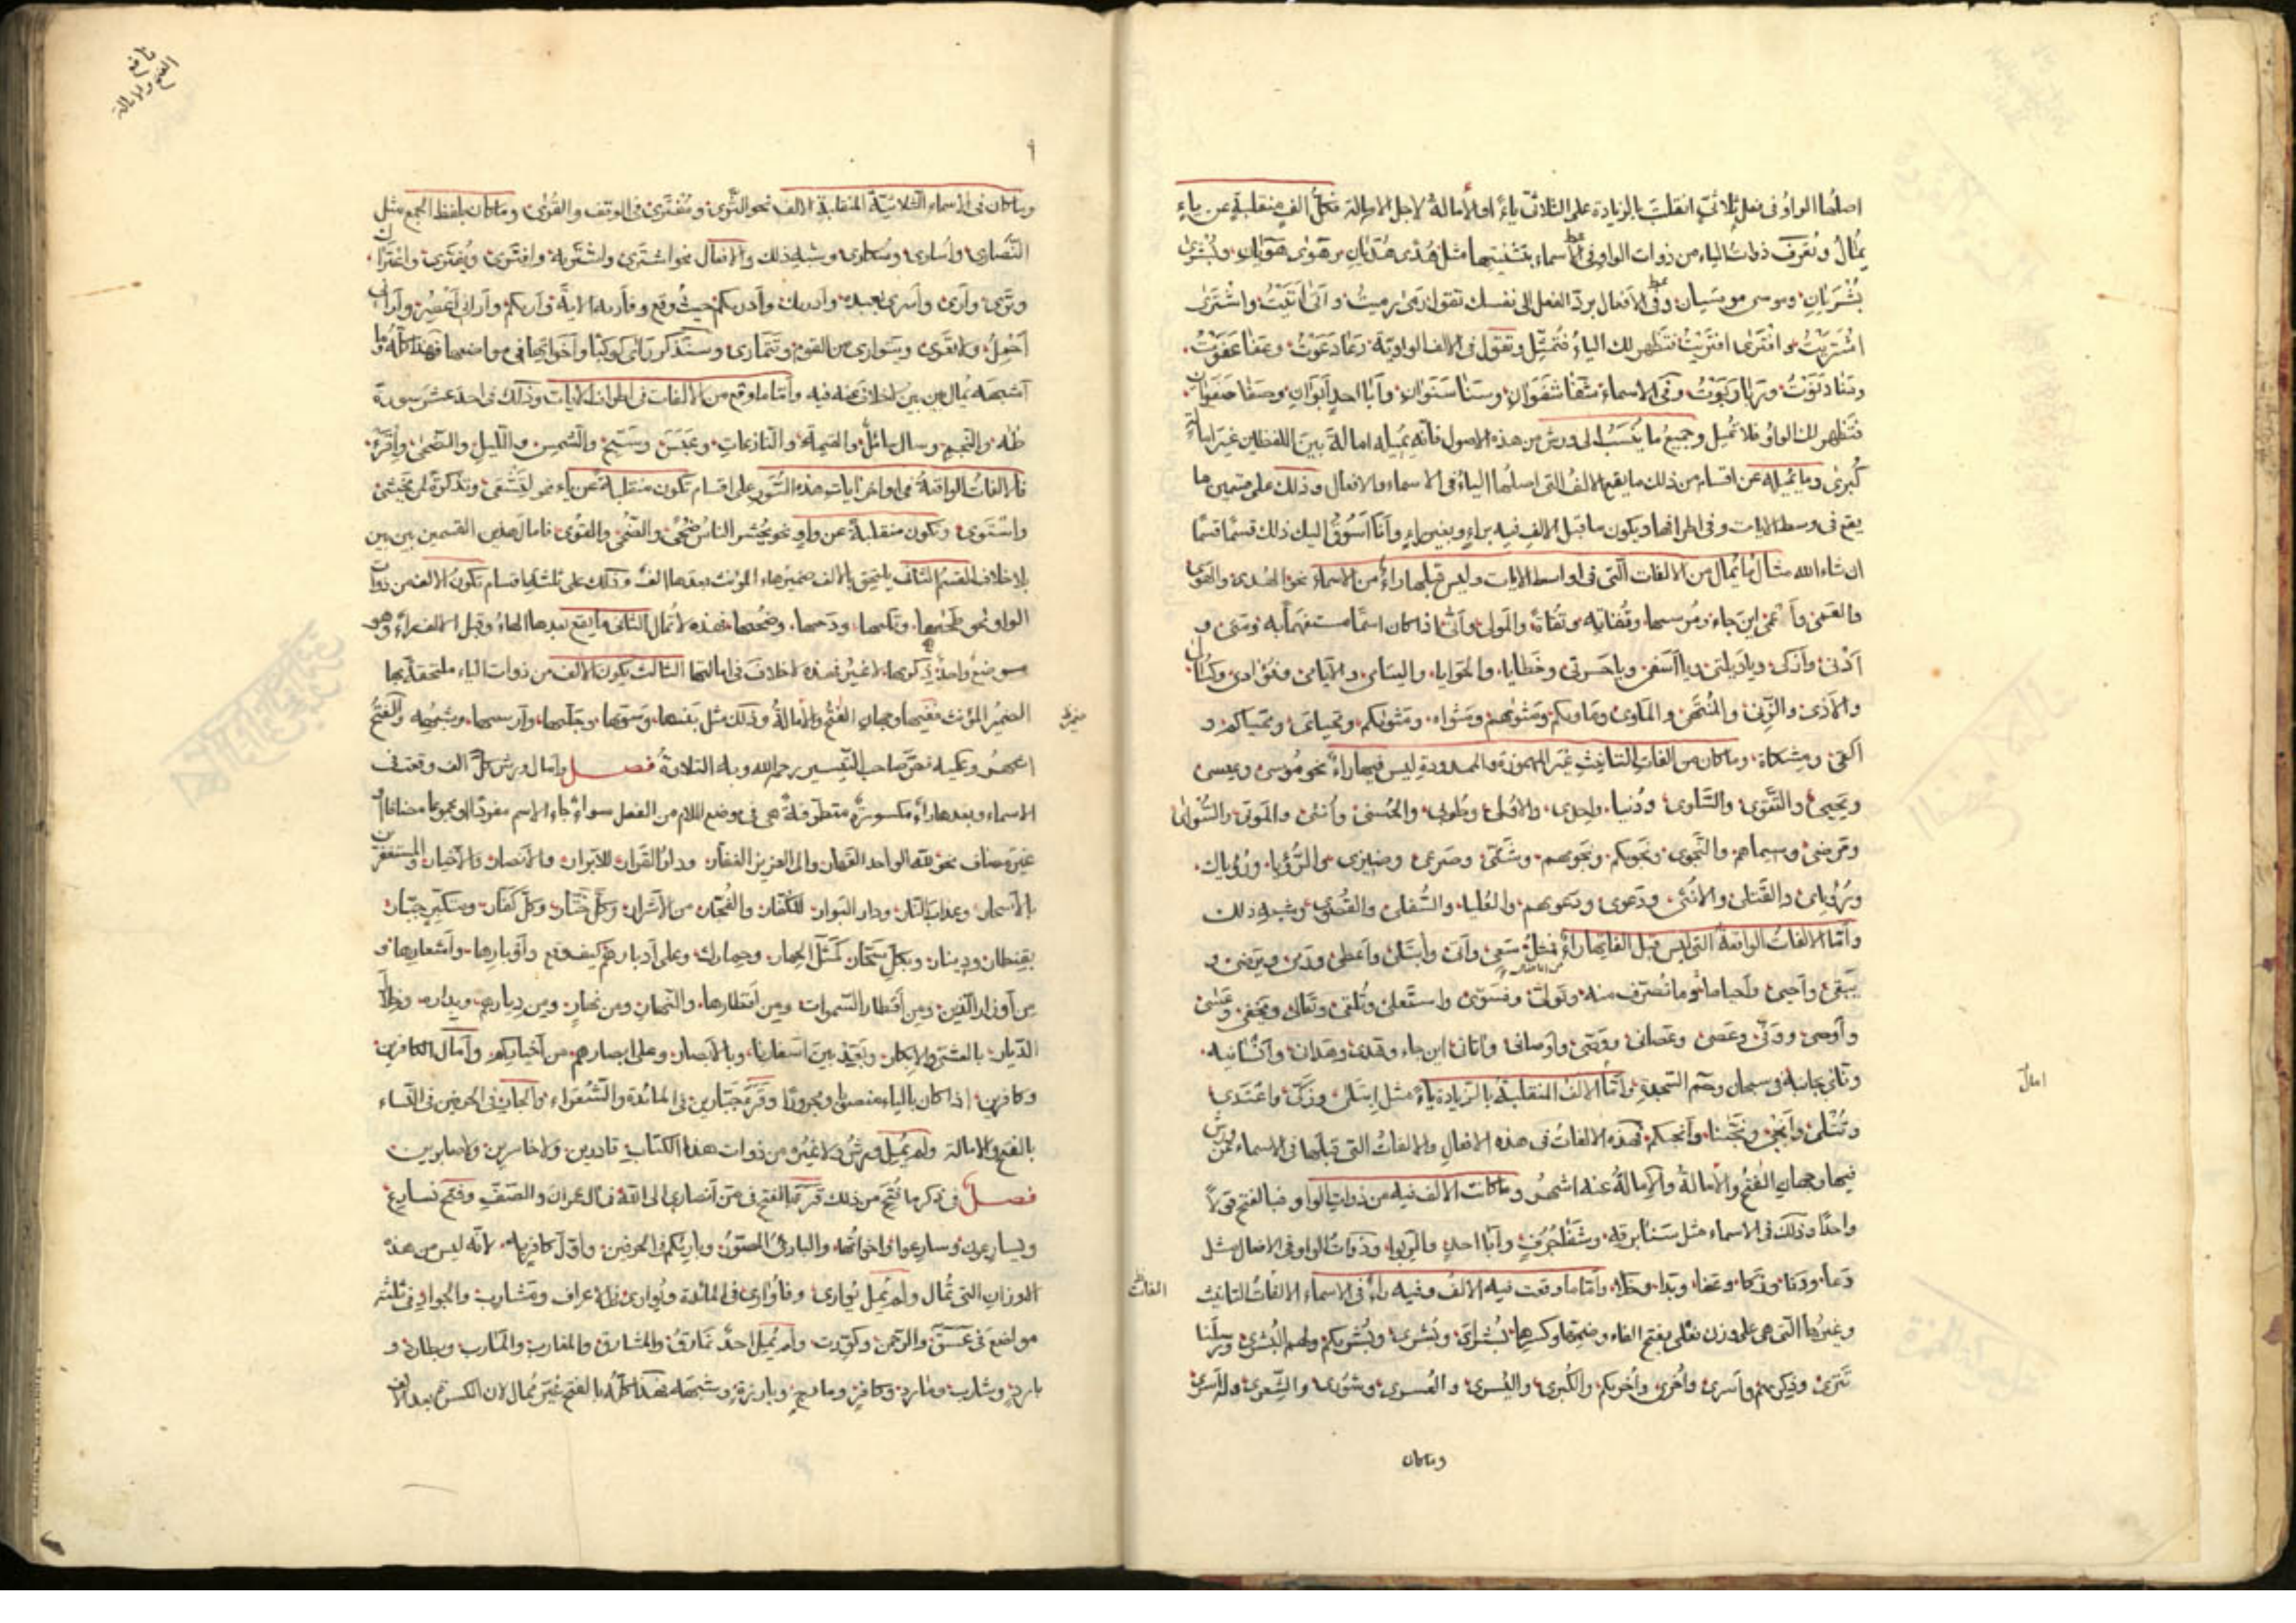 اصلها الواو فى فعل ثلاثى انقلبت بالزيادة على الثلاث ياء او لامالة لاجل الامالة فكل الف منقلبة عن ياء
يمال وتعرف ذوات الياء من ذوات الواو فى الاسماء بتثنيتها مثل هدى هديان وهوى هويان وبشرى
بشريان وموسى موسيان وفى الافعال برد الفعل الى نفسك تقول رمى رميت واتى اتيت واشترى
اشتريت وافترى افتريت فتظهر لك الياء فتميل وتقول فى الالف الواوية دعا دعوت وعفا عفوت
ودنا دنوت وربا ربوت وفى الاسماء شفا شفوان وسنا سنوان وابا احد ابوان وصفا صفوان
فتظهر لك الواو فلا تميل وجميع ما ينسب الى ورش من هذه الاصول فانه يميله امالة بين اللفظين غير
كبرى وما يميله عن اقسام من ذلك ما يقع الالف التى اصلها الياء فى الاسماء والافعال وذلك على ضربين ما
يقع فى وسط الايات وفى اطرافها ويكون ما قبل الالف فيه براء وبغير راء وانا اسوق اليك ذلك قسما قسما
ان شاء الله مثال ما يمال من الالفات التى فى اواسط الايات وليس قبلها راء من الاسماء نحو الهدى والهوى
والعمى واين جاء ومرسيها وتقاته وتقاة والمولى وانى اذا كان اسما مستفهما به ومتى و
ادنى وازكى وياويلتى ويا اسفى وياحسرتى وخطايا والحوايا واليتامى والايامى وفرادى وكسالى
والاذى والزنى والضحى والماوى وماويكم ومثويهم ومثواه ومثويكم ومحياى ومحياهم و
اكفى ومشكاة وما كان من الفات التانيث غير المهموزة والممدودة ليس فيها راء نحو موسى وعيسى
ويحيى والتقوى والسلوى ودنيا واحدى والاولى وطوبى والحسنى وانثى والموتى والسوأى
ومرضى وسيماهم والنجوى ونجويكم ونجويهم وشتى وصرعى وضيزى والرؤيا ورؤياك
ورؤياى والقتلى والانثى ودعوى ودعويهم والعليا والسفلى والقصوى وشبه ذلك
واما الالفات الواقعة التى ليس قبل الفاتها راء فمثل سعى واتى وابتلى واعطى ويرضى و
يبقى واحيى واحياها وما تصرف منه وتولى وفسوى واستعلى وتلقى وتعالى ويخفى وعسى
واوصى ووفى وعصى وعصانى وقضى واوصانى واتانى اين جاء وهدى وهدان وانسانيه
وناى بجانبه فى سبحان وحم السجدة واما الالف المنقلبة بالزيادة ياء مثل ابتلى وزكى واعتدى
وتتلى وانجى ونجينا وانجيكم فهذه الالفات فى هذه الافعال والالفات التى قبلها فى الاسماء عن ورش
فيها وجهان الفتح والامالة والامالة عنه اشهر وما كانت الالف فيه من ذوات الواو فبالفتح قولا
واحدا وذلك فى الاسماء مثل سنا برقه وشفا جرف وابا احد والربوا وذوات الواو فى الافعال مثل
دعا ودنا وزكا وعفا وبدا وخلا واما ما وقعت فيه الالف وفيه راء فى الاسماء الالفات التانيث
وغيرها التى هى على وزن فعلى بفتح الفاء وضمها وكسرها بشراى وبشرى وبشريكم ولهم البشرى ورسلنا
تترى وذكريهم واسرى واخرى واخريكم والكبرى واليسرى والعسرى وشورى والشعرى وله اسرى
وما كان
امال
الفات
وما كان فى الاسماء الثلاثية المنقلبة الالف نحو الثرى ومفترى فى الوقف والقرى وما كان بلفظ الجمع مثل
النصارى واسارى وسكارى وشبه ذلك والافعال نحو اشترى واشتريه وافترى ويفترى واعترا
وترى وارى واسرى بعبده وادريك وادريكم حيث وقع وفاريه الاية واريكم وارانى اعصر وارانى
احمل ولا تعرى ويتوارى من القوم وتتمارى وسنذكر راى كوكبا واخواتها فى مواضعها فهذا كله وما
اشبهه يمال بين بين بلا خلاف عنه فيه واما ما وقع من الالفات فى اطراف الايات وذلك فى احد عشر سورة
طه والنجم وسال سائل والقيمة والنازعات وعبس وسبح والشمس والليل والضحى واقرء
فالالفات الواقعة فى اواخر ايات هذه السور على اقسام تكون منقلبة عن ياء نحو لتشقى وتذكرة لمن يخشى
واستوى وتكون منقلبة عن واو نحو يحشر الناس ضحى والضحى والقوى فامال هذين القسمين بين بين
بلا خلاف القسم الثالث يلتحق بالالف ضمير هاء المؤنث بعدها الف وذلك على ثلثة اقسام تكون الالف من ذوات
الواو نحو طحيها وتليها ودحيها وضحيها فهذه لا تمال الثانى ما يقع بعدها الهاء وقبل الالف راء وهو
موضع واحد ذكريها لا غير فهذه لا خلاف فى امالتها الثالث يكون الالف من ذوات الياء ملتحقة بها
الضمير المؤنث ففيها وجهان الفتح والامالة وذلك مثل بنيها وسويها وجليها وارسيها وشبهه والفتح
اشهر ويكيه نص صاحب التيسير رحمه الله وبه التلاوة فصل وامال ورش كل الف وقعت فى
الاسماء وبعدها راء مكسورة متطرفة هى فى موضع اللام من الفعل سواء جاء الاسم مفردا او مجموعا مضافا او
غير مضاف نحو لله الواحد القهار والى العزيز الغفار ودار القرار للابرار والانصار والاخيار والمستغفرين
بالاسحار وعذاب النار ودار البوار للكفار والفجار من الاشرار وكل ختار وكل كفار ومتكبر جبار
بقنطار ودينار وبكل سحار كمثل الحمار وحمارك وعلى ادبارهم كيف وقع واوبارها واشعارها و
من اوزار الذين ومن اقطار السموات ومن اقطارها والنهار ومن نهار ومن ديارهم وبداره وخلا
الديار بالعشى والابكار وبعد بين اسفارنا وبالابصار وعلى ابصارهم من اخباركم وامال الكافرين
وكافرين اذا كان بالياء منصوبا ومجرورا وقرء جبارين فى المائدة والشعراء والجار فى الحرفين فى النساء
بالفتح والامالة ولم يمل ورش ولا غيره من ذوات هذا الكتاب قادرين ولا خاسرين ولا صابرين
فصل فى ذكر ما فتح من ذلك قرء بالفتح فى من انصارى الى الله فى ال عمران والصف وفتح نسارع
ويسارعون وسارعوا واخواتها والبارئ المصور وبارئكم فى الحرفين واول كافر به لانه ليس من هذه
الاوزان التى تمال ولم يمل يوارى وفاوارى فى المائدة ويوارى فى الاعراف ومشارب والجوار فى ثلثة
مواضع فى عسق والرحمن وكورت ولم يمل احد نمارق والمشارق والمغارب والمارب وبطارد و
بارد وشارب ومارد وكافر ومانع وبارزة وشبهه فهذا كله بالفتح غير ممال لان الكسرة بعد الالف